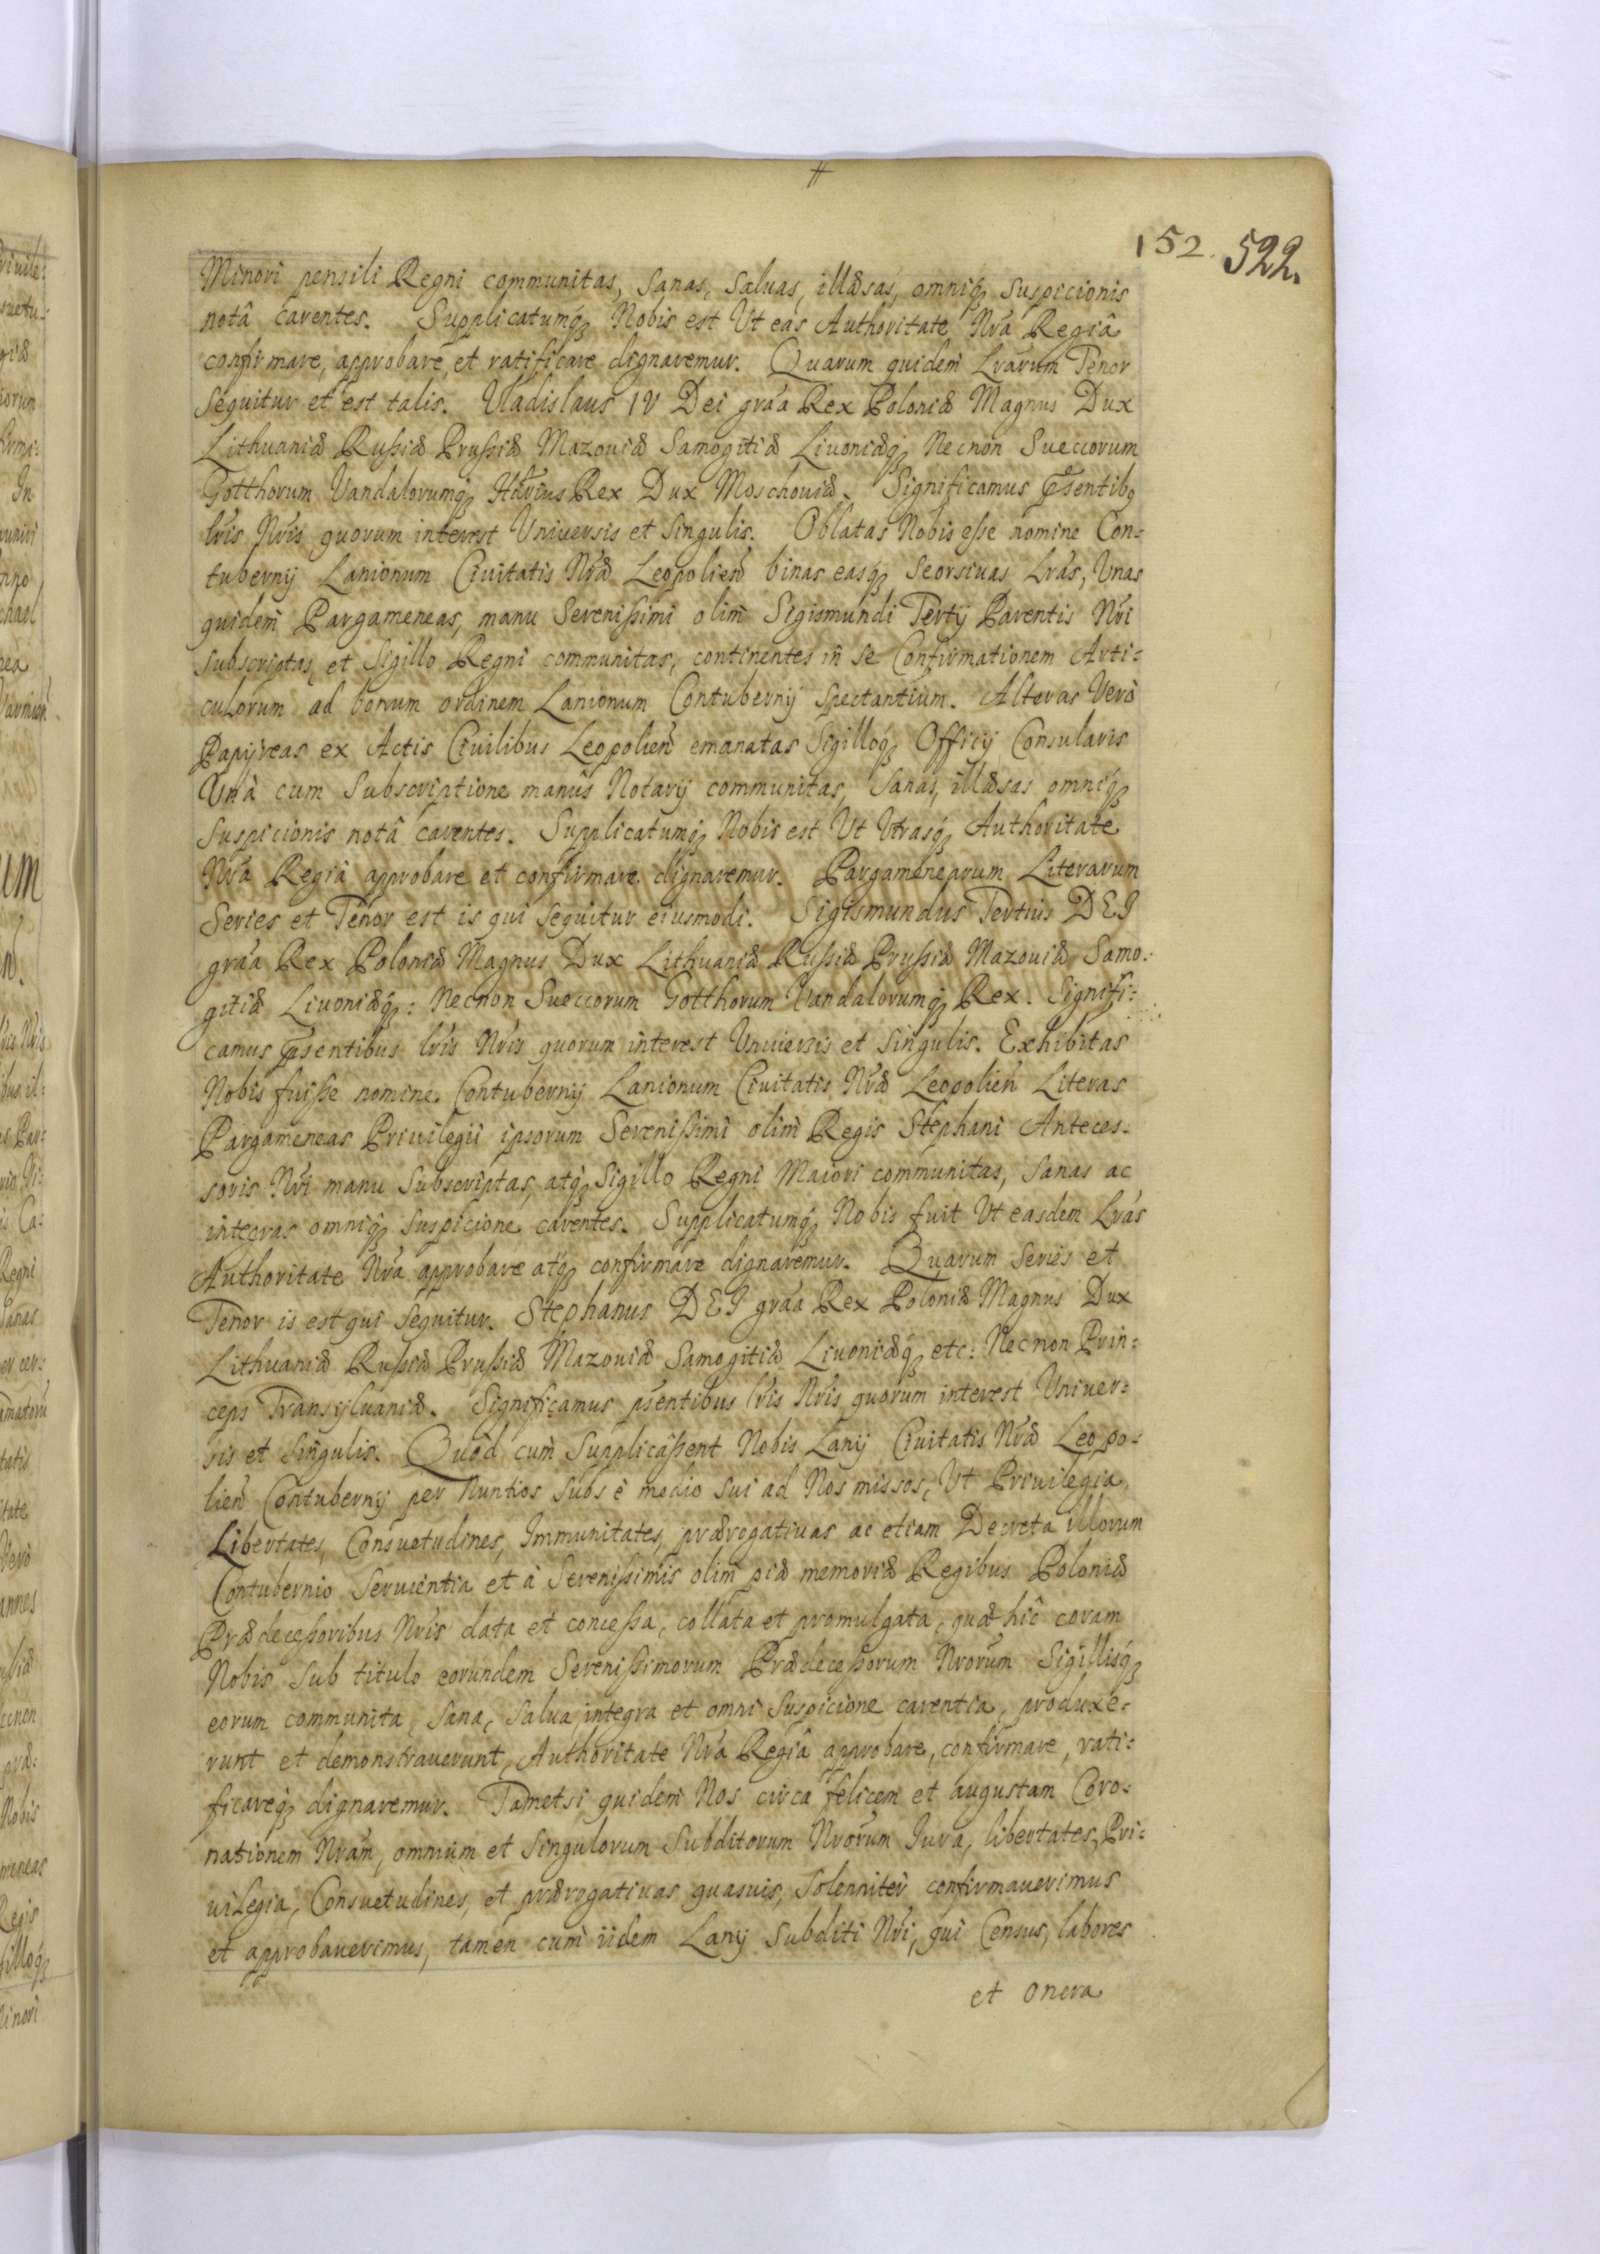 152. 522.
Minori pensili Regni communitas, Sanas, Saluas, illæsas, omniq₃ Suspicionis
notâ carentes. Supplicatumq₃ Nobis est Ut eas Authoritate Nrâ Regiâ
confirmare, approbare, et ratificare dignaremur. Quarum quidem Lrarum Tenor
Sequitur et est talis. Vladislaus IV Dei gra'a Rex Poloniæ Magnus Dux
Lithuaniæ Rußiæ Prußiæ Mazouiæ Samogitiæ Liuoniæq₃ Necnon Sueccorum
Gotthorum Vandalorumq₃ Hdrius Rex Dux Moschouiæ. Significamus pñsentib₉
lris Nris quorum interest Uniuersis et Singulis. Oblatas Nobis eße nomine Con:
tubernij Lanionum Ciuitatis Nræ Leopolien̄ binas easq₃ Seorsiuas Lras, Unas
quidem Pargameneas, manu Sereníßimi olim Sigismundi Tertij Parentis Nri
Subscriptas, et Sigillo Regni communitas, continentes in se Confirmationem Arti:
culorum ad bonum ordinem Lanionum Contubernij Spectantium. Alteras Verò
Papyreas ex Actis Ciuilibus Leopolien̄ emanatas Sigilloq₃ Officij Consularis
Unà cum Subscriptione manûs Notarij communitas, Sanas, illæsas omniq₃
Suspicionis notâ carentes. Supplicatumq₃ Nobis est Ut Utrasq₃ Authoritate
Nrâ Regiâ approbare et confirmare dignaremur. Pargamenearum Literarum
Series et Tenor est is qui Sequitur eiusmodi. Sigismundus Tertius DEI
gra'a Rex Poloniæ Magnus Dux Lithuaniæ Rußiæ Prußiæ Mazouiæ Samo:
gitiæ Liuoniæq₃: Necnon Sueccorum Gotthorum Vandalorumq₃ Rex. Signifi:
camus pñsentibus lris Nris quorum interest Uniuersis et Singulis. Exhibitas
Nobis fuiße nomine Contubernij Lanionum Ciuitatis Nræ Leopolien̄ Literas
Pargameneas Priuilegii ipsorum Sereníßimi olim Regis Stephani Anteces:
soris Nri manu Subscriptas, atq₃ Sigillo Regni Maiori communitas, Sanas ac
integras omniq₃ Suspicione carentes. Supplicatumq₃ Nobis fuit Ut easdem Lras
Authoritate Nrâ approbare atq₃ confirmare dignaremur. Quarum Series et
Tenor is est qui Sequitur. Stephanus DEI gra'a Rex Poloniæ Magnus Dux
Lithuaniæ Rußiæ Prußiæ Mazouiæ Samogitiæ Liuoniæq₃ etc: Necnon Prin:
ceps Transyluaniæ. Significamus psentibus lris Nris quorum interest Uniuer:
sis et Singulis. Quòd cum Supplicâßent Nobis Lanij Ciuitatis Nræ Leopo:
lien̄ Contubernij per Nuntios Suos è medio Sui ad Nos missos, Ut Priuilegia,
Libertates, Consuetudines, Immunitates, prærogatiuas ac etiam Decreta illorum
Contubernio Seruientia et à Sereníßimis olim piæ memoriæ Regibus Poloniæ
Prædeceßoribus Nris data et conceßa, collata et promulgata, quæ hîc coram
Nobis Sub titulo eorundem Sereníßimorum Prædeceßorum Nrorum Sigillisq₃
eorum communita, Sana, Salua, integra et omni Suspicione carentia, produxe:
runt et demonstrauerunt, Authoritate Nrâ Regiâ approbare, confirmare, rati:
ficareq₃ dignaremur. Tametsi quidem Nos circa felicem et augustam Coro:
nationem Nram, omnium et Singulorum Subditorum Nrorum Iura, libertates, Pri:
uilegia, Consuetudines, et prærogatiuas quasuis, Solenniter confirmauerimus
et approbauerimus, tamen cum iidem Lanij Subditi Nri, qui Census, labores
et onera